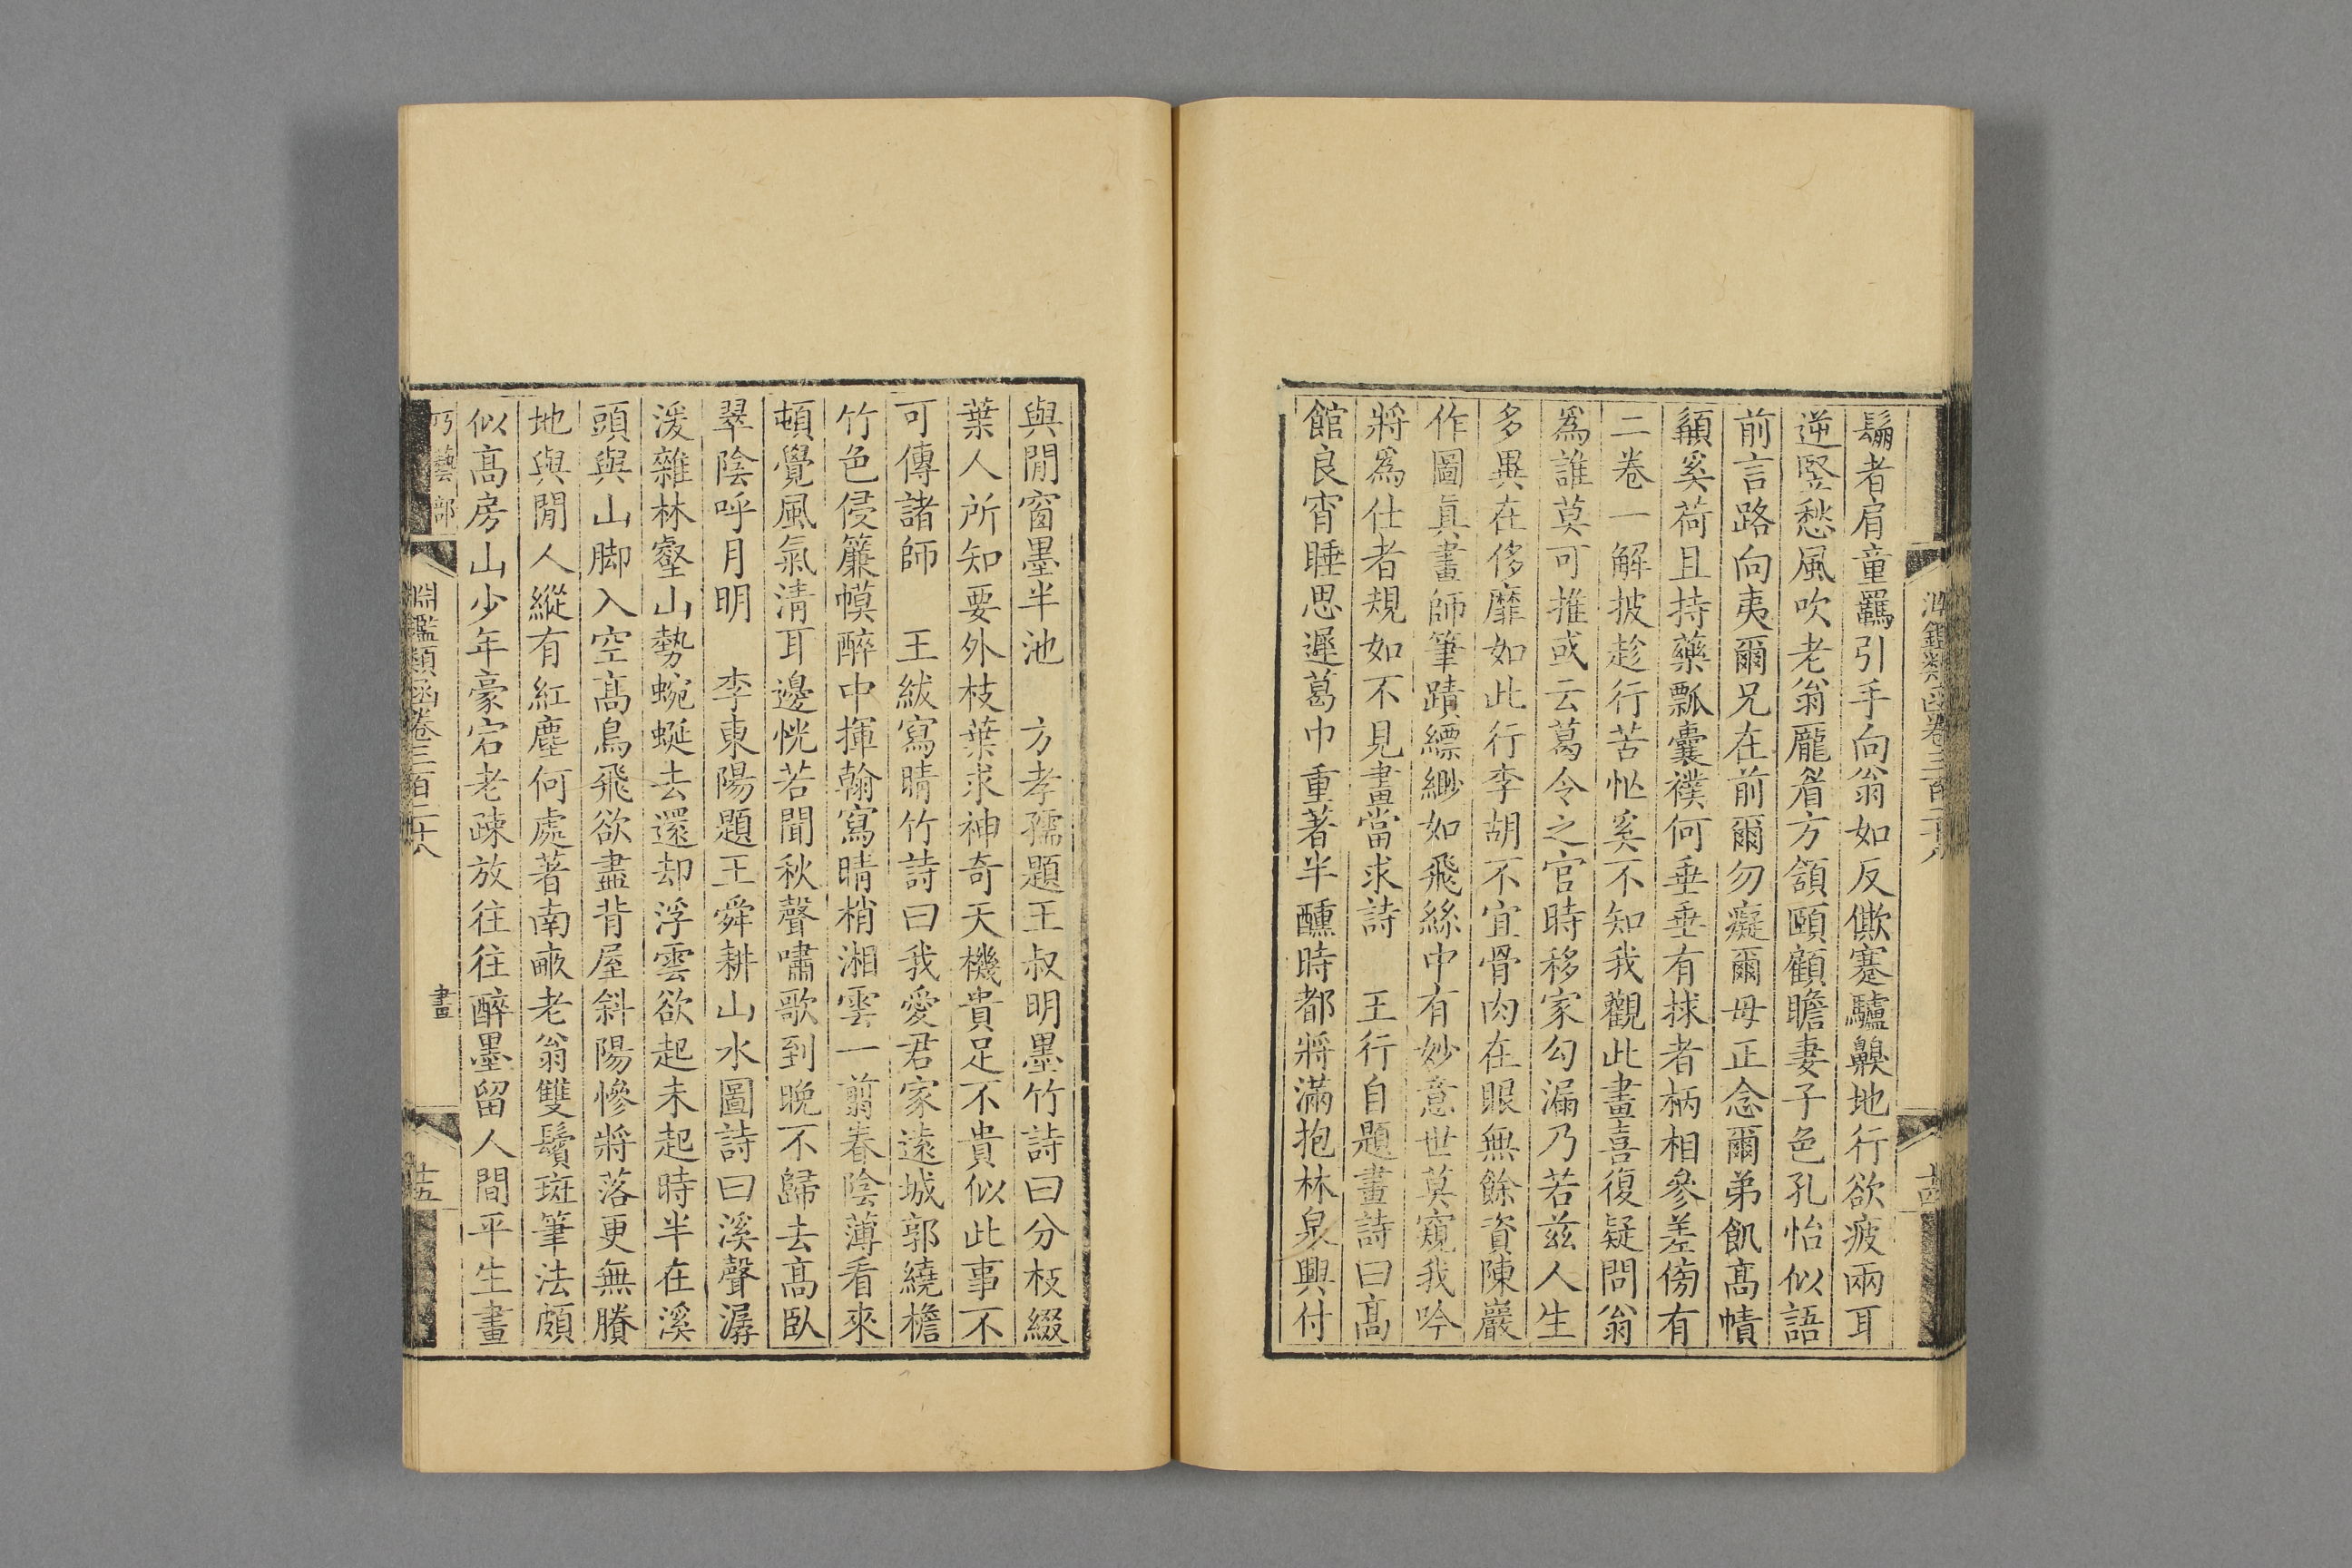 淵鑑類函卷三百二十八
十四
鬅者肩童羈引手向翁如反僛蹇驢鼻地行欲疲兩耳
逆豎愁風吹老翁龐眉方頷頤顧瞻妻子色孔怡似語
前言路向夷爾兄在前爾勿癡爾母正念爾弟飢髙幘
纇奚荷且持藥瓢囊襆何垂垂有捄者柄相參差傍有
二卷一解披趁行苦怭奚不知我觀此畫喜復疑問翁
爲誰莫可推或云葛令之官時移家勾漏乃若兹人生
多異在侈靡如此行李胡不宜骨肉在眼無餘資陳巖
作圖真畫師筆蹟縹緲如飛絲中有妙意世莫窺我吟
將爲仕者規如不見畫當求詩　王行自題畫詩曰髙
館良宵睡思遲葛巾重著半醺時都將滿抱林泉興付
與閒窗墨半池　方孝孺題王叔明墨竹詩曰分枝綴
葉人所知要外枝葉求神奇天機貴足不貴似此事不
可傳諸師　王紱寫晴竹詩曰我愛君家遠城郭繞檐
竹色侵簾幙醉中揮翰寫晴梢湘雲一剪春陰薄看來
頓覺風氣清耳邊恍若聞秋聲嘯歌到晚不歸去髙臥
翠陰呼月明　李東陽題王舜耕山水圖詩曰溪聲潺
湲雜林壑山勢蜿蜒去還却浮雲欲起未起時半在溪
頭與山脚入空髙鳥飛欲盡背屋斜陽慘將落更無賸
地與閒人縱有紅塵何處著南畝老翁雙鬢斑筆法頗
似髙房山少年豪宕老疎放往往醉墨留人間平生畫
巧藝部
淵鑑類函卷三百二十八
畫
十五